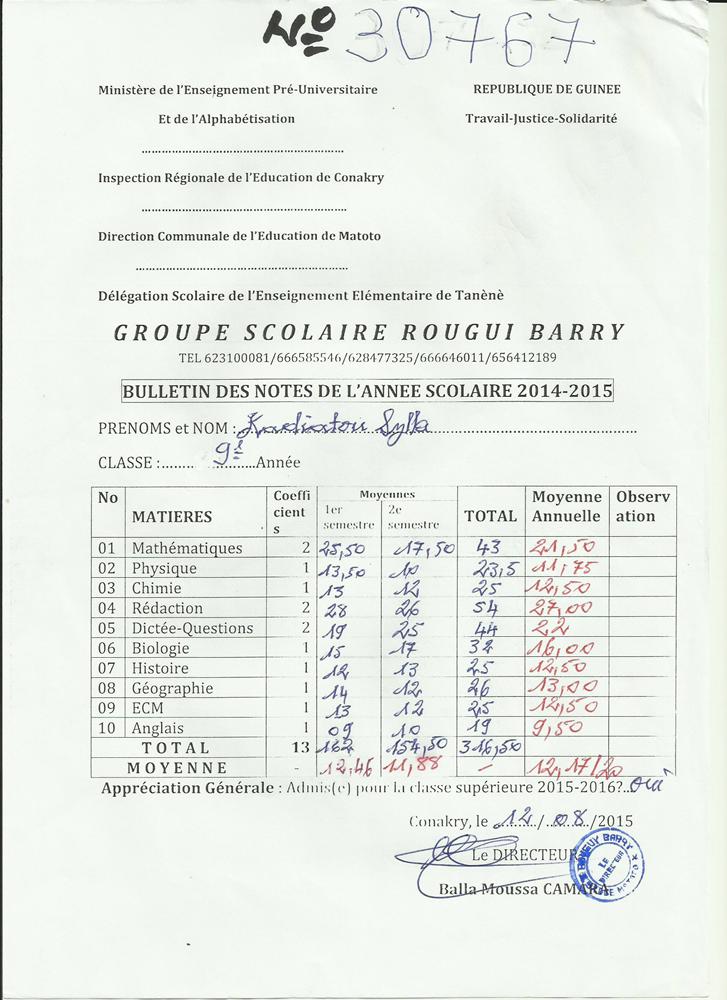 Nº 30767
Ministère de l'Enseignement Pré-Universitaire REPUBLIQUE DE GUINEE
Et de l'Alphabétisation Travail-Justice-Solidarité
Inspection Régionale de l'Education de Conakry
Direction Communale de l'Education de Matoto
Délégation Scolaire de l'Enseignement Elémentaire de Tanènè
GROUPE SCOLAIRE ROUGUI BARRY
TEL 623100081/666585546/628477325/666646011/656412189
BULLETIN DES NOTES DE L'ANNEE SCOLAIRE 2014-2015
PRENOMS et NOM : Kadiatou Sylla
CLASSE :........ 9è ..........Année
No MATIERES Coefficients Moyennes 1er semestre 2e semestre TOTAL Moyenne Annuelle Observation
01 Mathématiques 2 25,50 17,50 43 21,50
02 Physique 1 13,50 10 23,5 11,75
03 Chimie 1 13 12 25 12,50
04 Rédaction 2 28 26 54 27,00
05 Dictée-Questions 2 19 25 44 22
06 Biologie 1 15 17 32 16,00
07 Histoire 1 12 13 25 12,50
08 Géographie 1 14 12 26 13,00
09 ECM 1 13 12 25 12,50
10 Anglais 1 09 10 19 9,50
TOTAL 13 162 154,50 316,50
MOYENNE - 12,46 11,88 - 12,17/20
Appréciation Générale : Admis(e) pour la classe supérieure 2015-2016?..Oui
Conakry, le 12/08/2015
Le DIRECTEUR
Balla Moussa CAMARA
LE DIRECTEUR